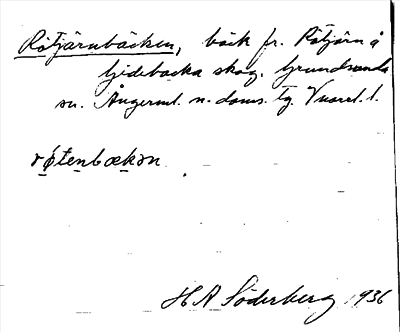 Rötjärnbäcken, bäck fr. Rötjärn å
Gidebacka skog. Grundsunda
sn. Ångerml. n. doms. Tg. Vnorrl. l.
røtenbækən.
H A Söderberg 1936